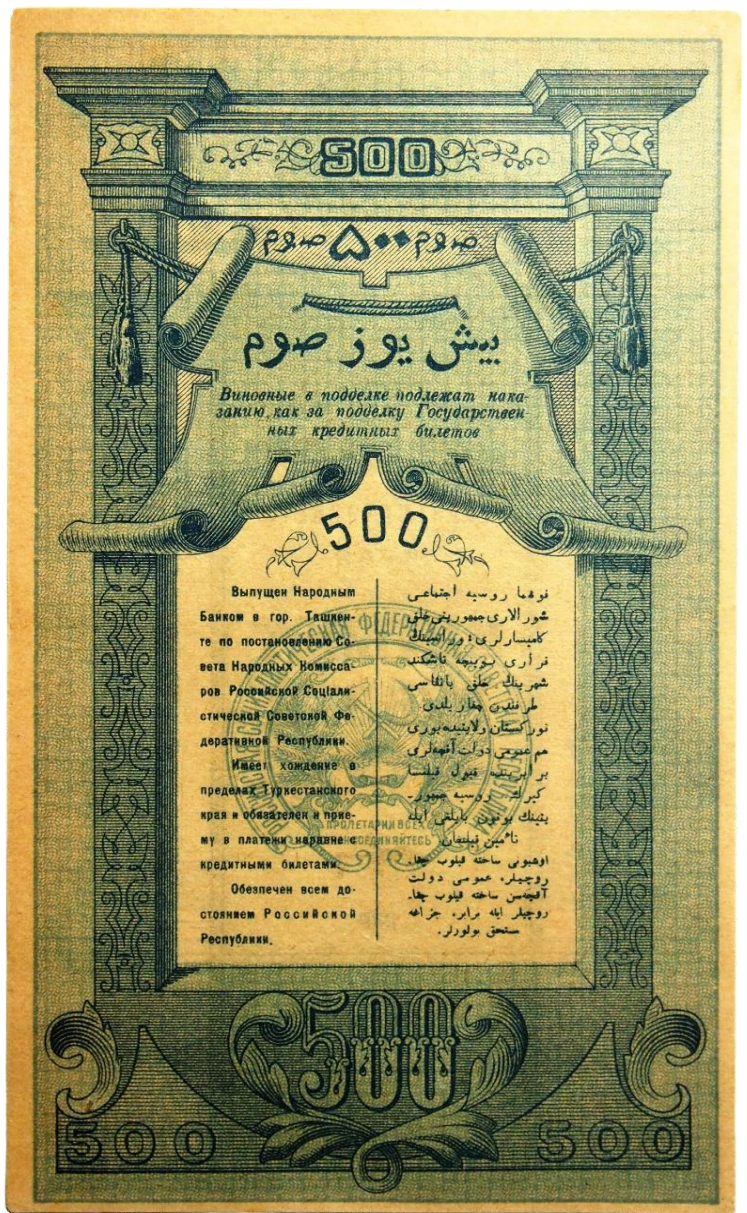 500
صوم ۵۰۰ صوم
بيش يوز صوم
Виновные в подделке подлежат нака-
занию, как за подделку Государствен
ных кредитных билетов
500
Выпущен Народным
Банком в гор. Ташкен-
те по постановлению Со-
вета Народных Комисса-
ров Российской Социали-
стической Советской Фе-
деративной Республики.
Имеет хождение в
пределах Туркестанского
края и обязателен к прие-
му в платежи наравне с
кредитными билетами.
Обеспечен всем до-
стоянием Российской
Республики.
روسيه اجتماعى
شورالارى جمهوريتى خلق
قرارى بوينچه تاشكند
شهرينك خلق بانقاسى
طرفندن چقاريلدى
توركستان ولايتيده يورى
هم عمومى دولت آقچه‌لرى
برابرينده قبول قيلنسا
كيرك. روسيه جمهور-
يتينك بوتون بايلقى ايله
تأمين قيلنغان.
اوشبونى ساخته قيلوب چقا-
روچيلر، عمومى دولت
آقچه‌سن ساخته قيلوب چقا-
روچيلر ايله برابر، جزاغه
مستحق بولورلر.
ПРОЛЕТАРИИ ВСЕХ
СОЕДИНЯЙТЕСЬ
500
500 500